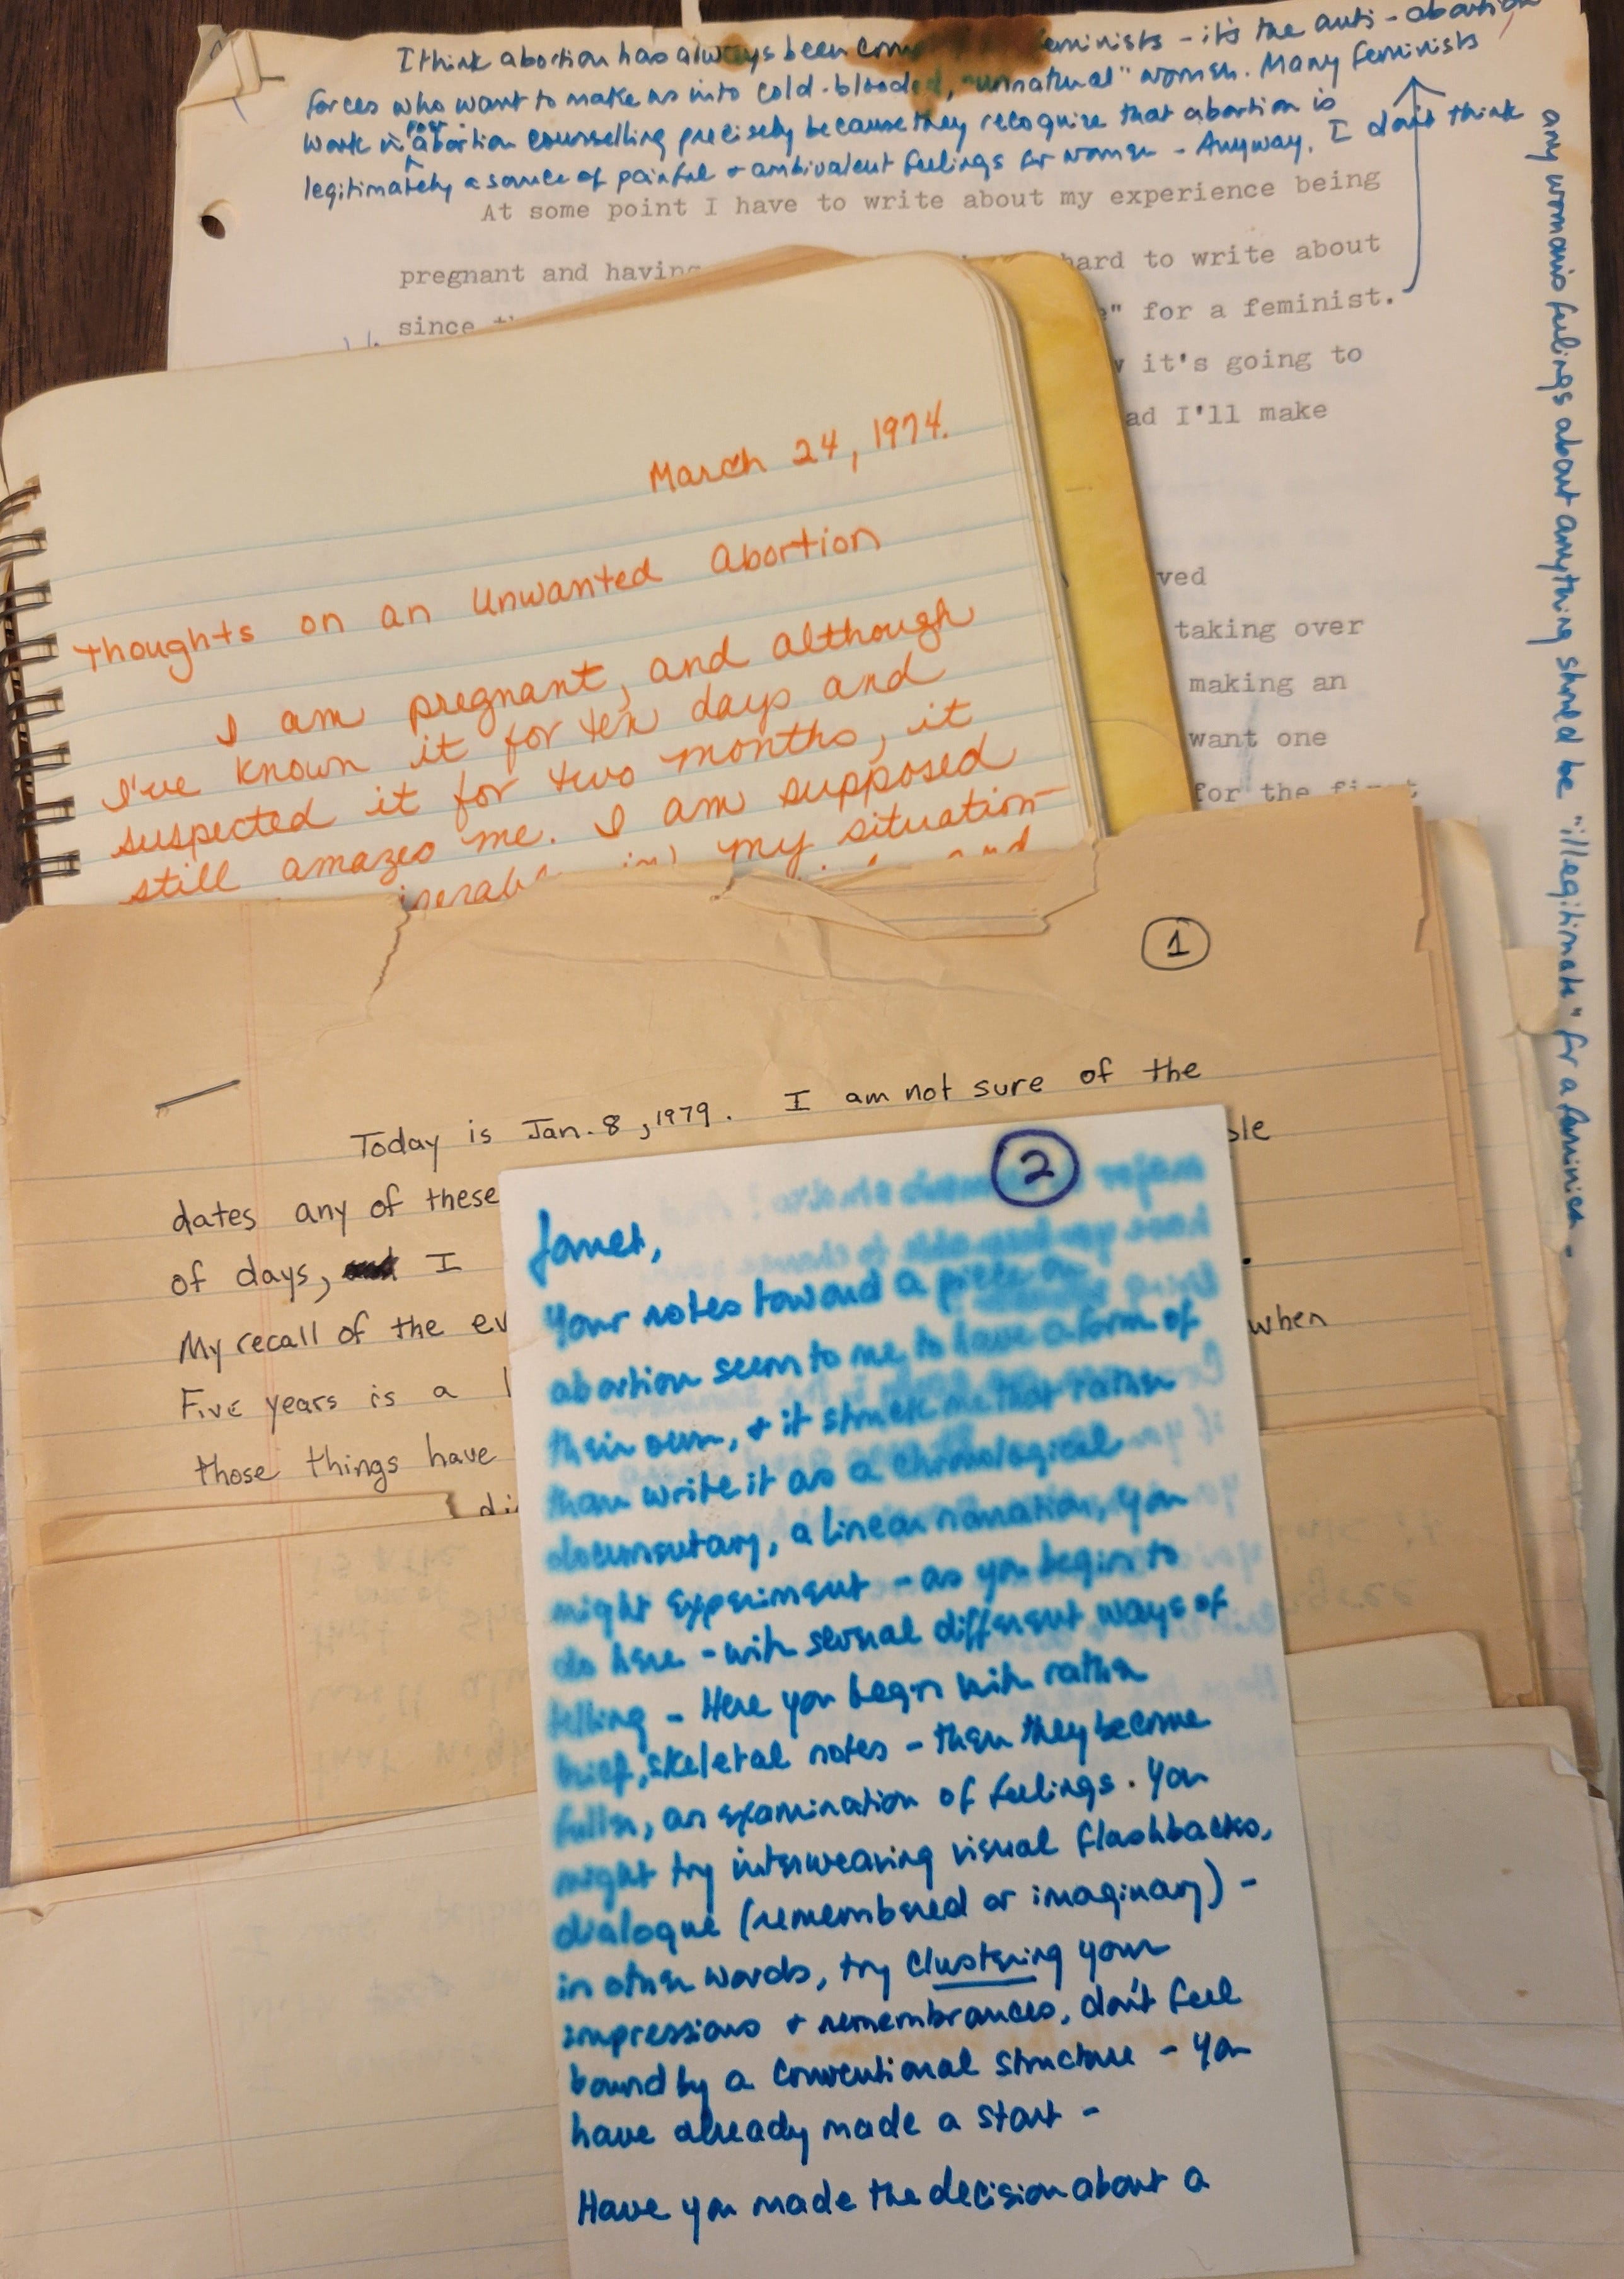 I think abortion has always been feminists - it's the anti-abortion
forces who want to make us into cold-blooded, "unnatural" women. Many feminists
work in post-abortion counselling precisely because they recognize that abortion is
legitimately a source of painful + ambivalent feelings for women - Anyway, I don't think
any woman's feelings about anything should be "illegitimate" for a feminist -
At some point I have to write about my experience being
pregnant and having hard to write about
since for a feminist.
it's going to
I'll make
taking over
making an
want one
for the first
March 24, 1974.
Thoughts on an Unwanted Abortion
I am pregnant, and although
I've known it for ten days and
suspected it for two months, it
still amazes me. I am supposed
my situation
and
1
Today is Jan. 8, 1979. I am not sure of the
dates any of these
of days, I
My recall of the when
Five years is a
those things have
2
Janet,
Your notes toward a piece on
abortion seem to me to have a form of
their own, + it struck me that rather
than write it as a chronological
documentary, a linear narration, you
might experiment - as you begin to
do here - with several different ways of
telling - Here you begin with rather
brief, skeletal notes - then they become
fuller, an examination of feelings. You
might try interweaving visual flashbacks,
dialogue (remembered or imaginary) -
in other words, try clustering your
impressions + remembrances, don't feel
bound by a conventional structure - you
have already made a start -
Have you made the decision about a